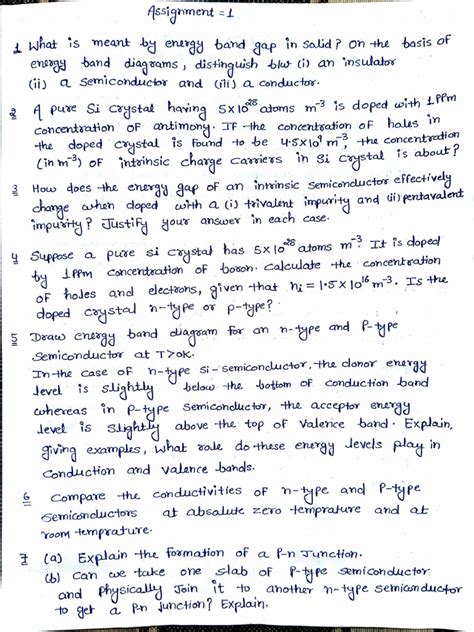 Assignment = 1
1 What is meant by energy band gap in solid? On the basis of
energy band diagrams, distinguish b/w (i) an insulator
(ii) a semiconductor and (iii) a conductor.
2 A pure Si crystal having 5×10²⁸ atoms m⁻³ is doped with 1 PPm
concentration of antimony. IF the concentration of holes in
the doped crystal is found to be 4.5×10⁹ m⁻³, the concentration
(in m⁻³) of intrinsic charge carriers in Si crystal is about?
3 How does the energy gap of an intrinsic semiconductor effectively
change when doped with a (i) trivalent impurity and (ii) pentavalent
impurity? Justify your answer in each case.
4 Suppose a pure si crystal has 5×10²⁸ atoms m⁻³. It is doped
by 1 PPm concentration of boron. Calculate the concentration
of holes and electrons, given that ni = 1.5×10¹⁶ m⁻³. Is the
doped crystal n-type or p-type?
5 Draw energy band diagram for an n-type and P-type
semiconductor at T>0K.
In the case of n-type si-semiconductor, the donor energy
level is slightly below the bottom of conduction band
whereas in p-type semiconductor, the acceptor energy
level is slightly above the top of valence band. Explain,
giving examples, what role do these energy levels play in
conduction and valence bands.
6 Compare the conductivities of n-type and P-type
semiconductors at absolute zero temprature and at
room temprature.
7 (a) Explain the formation of a P-n Junction.
(b) Can we take one slab of P-type semiconductor
and Physically Join it to another n-type semiconductor
to get a P-n junction? Explain.